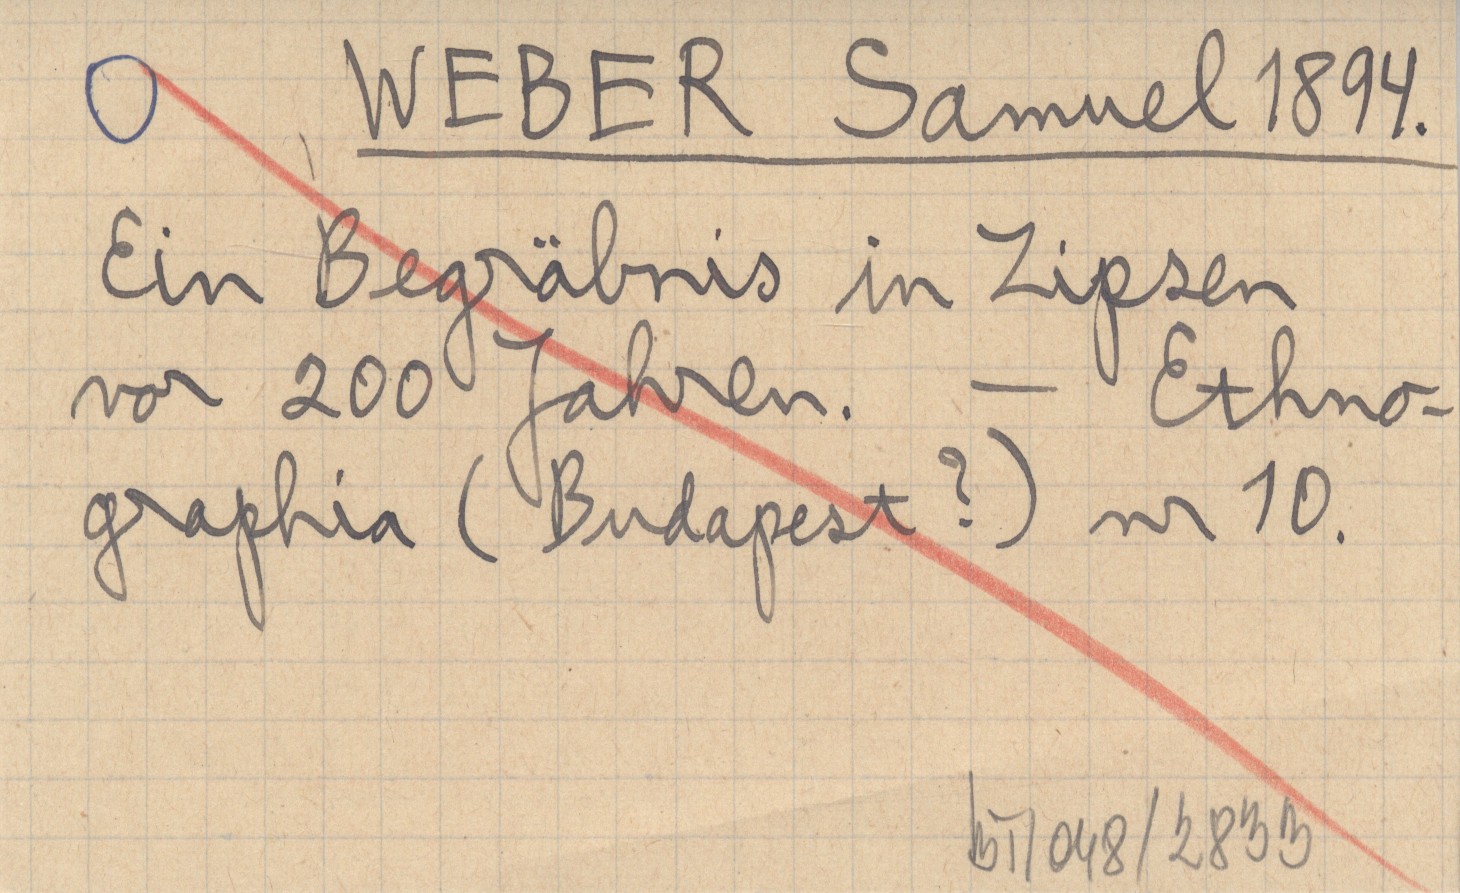 WEBER Samuel 1894.
Ein Begräbnis in Zipsen
vor 200 Jahren. — Ethno-
graphia (Budapest?) nr 10.
048/2833